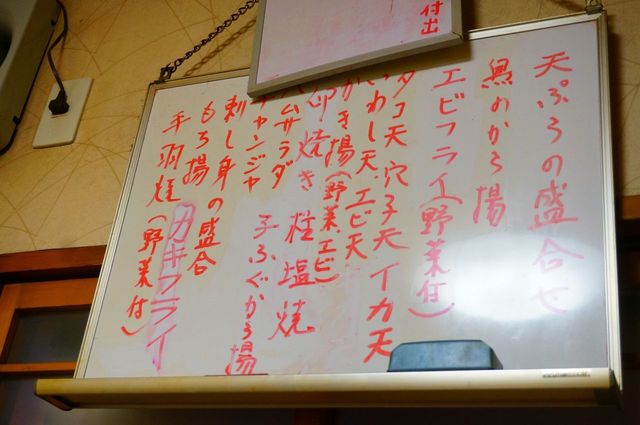 付出
天ぷらの盛合せ
魚のから揚
エビフライ(野菜付)
タコ天 穴子天 イカ天
いわし天 エビ天
かき揚(野菜、エビ)
卵焼き 鮭塩焼
ハムサラダ
チャンジャ 子ふぐから揚
刺し身の盛合
もち揚
カキフライ
手羽焼(野菜付)